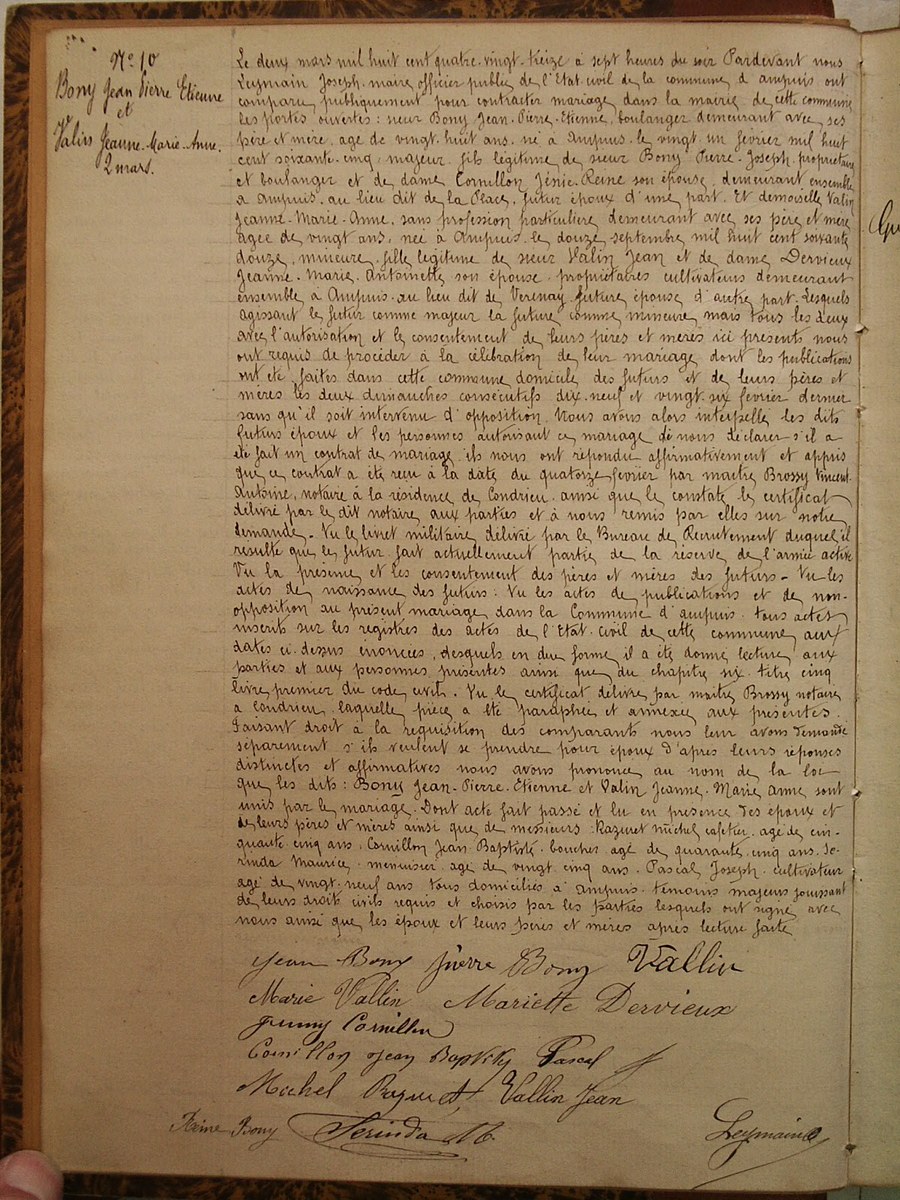 N° 10
Bony Jean Pierre Etienne
et
Valin Jeanne-Marie-Anne.
2 mars.
Le deux mars mil huit cent quatre-vingt-treize à sept heures du soir Pardevant nous
Leymain Joseph, maire officier public de l'Etat civil de la commune d'ampuis ont
comparu publiquement pour contracter mariage dans la mairie de cette commune
les portes ouvertes: sieur Bony Jean-Pierre-Etienne, boulanger demeurant avec ses
père et mère, age de vingt-huit ans, né à Ampuis le vingt un février mil huit
cent soixante-cinq, majeur, fils légitime de sieur Bony Pierre-Joseph propriétaire
et boulanger et de dame Cornillon Jénie-Reine son épouse, demeurant ensemble
a ampuis, au lieu dit de la Place, futur époux d'une part. Et demoiselle Valin
Jeanne-Marie-Anne, sans profession particulière demeurant avec ses père et mère
agée de vingt ans, née à Ampuis le douze septembre mil huit cent soixante
douze, mineure, fille légitime de sieur Valin Jean et de dame Dervieux
Jeanne-Marie-Antoinette son épouse propriétaires cultivateurs demeurant
ensemble à Ampuis au lieu dit de Verenay future épouse d'autre part. Lesquels
agissant le futur comme majeur la future comme mineure mais tous les deux
avec l'autorisation et le consentement de leurs pères et mères ici présents nous
ont requis de procéder à la célébration de leur mariage dont les publications
ont été faites dans cette commune domicile des futurs et de leurs pères et
mères les deux dimanches consécutifs dix-neuf et vingt-six février dernier
sans qu'il soit intervenu d'opposition. Nous avons alors interpellé les dits
futurs époux et les personnes autorisant ce mariage de nous déclarer s'il a
été fait un contrat de mariage ils nous ont répondu affirmativement et appris
que ce contrat a été reçu à la date du quatorze février par maitre Brossy Vincent-
Antoine, notaire à la résidence de Condrieu ainsi que le constate le certificat
délivré par le dit notaire aux parties et à nous remis par elles sur notre
demande. Vu le livret militaire délivré par le Bureau de Recrutement duquel il
résulte que le futur fait actuellement partie de la réserve de l'armée active
Vu la présence et les consentement des pères et mères des futurs - Vu les
actes de naissance des futurs: Vu les actes de publications et de non-
opposition au présent mariage dans la Commune d'ampuis. tous actes
inscrits sur les registres des actes de l'Etat-civil de cette commune aux
dates ci-dessus énoncées, desquels en due forme il a été donné lecture aux
parties et aux personnes présentes ainsi que du chapitre six titre cinq
livre premier du code civil. Vu le certificat délivré par maitre Brossy notaire
a Condrieu laquelle pièce a été paraphée et annexée aux présentes.
Faisant droit à la requisition des comparants nous leur avons demandé
séparement s'ils veulent se prendre pour époux d'après leurs réponses
distinctes et affirmatives nous avons prononcé au nom de la loi
que les dits: Bony Jean-Pierre-Etienne et Valin Jeanne-Marie Anne sont
unis par le mariage. Dont acte fait passé et lu en présence des époux et
de leurs pères et mères ainsi que de messieurs: Razuret michel cafetier, agé de cin-
quante cinq ans, Cornillon Jean-Baptiste boucher agé de quarante cinq ans. Se-
rinda Maurice menuisier agé de vingt cinq ans. Pascal Joseph cultivateur
agé de vingt-neuf ans tous domiciliés à ampuis témoins majeurs jouissant
de leurs droits civils requis et choisis par les parties lesquels ont signé avec
nous ainsi que les époux et leurs pères et mères après lecture faite
Jean Bony Pierre Bony Vallin
Marie Vallin Mariette Dervieux
Jenny Cornillon
Cornillon Jean Baptiste Pascal J
Michel Vallin Jean
Reine Bony Serinda M.
Leymain